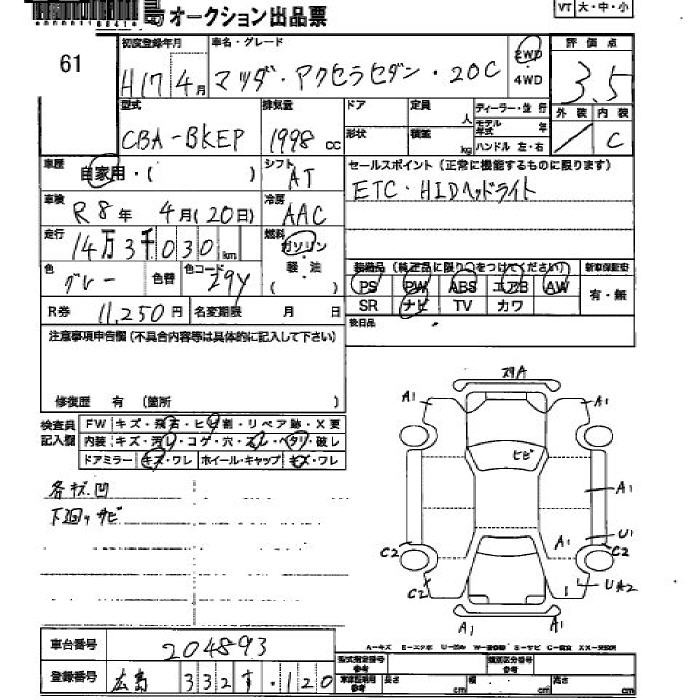 オークション出品票
VT 大・中・小
61
初度登録年月
車名・グレード
評価点
H17年 4月
マツダ・アクセラセダン・20C
2WD
・
4WD
3.5
型式
排気量
ドア
定員
人
ディーラー・並行
外装 内装
CBA-BKEP
1998 cc
形状
積載
kg
モデル年式
年
ハンドル 左・右
C
車歴
自家用・( )
シフト
AT
セールスポイント(正常に機能するものに限ります)
ETC・HIDヘッドライト
車検
R8年 4月(20日)
冷房
AAC
走行
14万3千030km
燃料
ガソリン
軽・油
( )
色
グレー
色替
色コード
29Y
装備品(純正品に限り○をつけてください)
新車保証書
PS PW ABS エアB AW
有・無
SR ナビ TV カワ
R券
11,250円
名変期限 月 日
後日品
注意事項申告欄(不具合内容等は具体的に記入して下さい)
修復歴 有 (箇所 )
検査員
記入欄
FW キズ・飛石・ヒビ割・リペア跡・X要
内装 キズ・汚れ・コゲ・穴・スレ・ヘタリ・破レ
ドアミラー キズ・ワレ ホイール・キャップ キズ・ワレ
各キズ凹
下回りサビ
スリA
A1 A1
ヒビ
A1
A1 U1
C2 C2
C2 UA2
A1 A1
車台番号
204893
登録番号
広島 332 す ・120
A-キズ E-エクボ
型式指定番号
類別区分番号
長さ cm 幅 cm 高さ cm